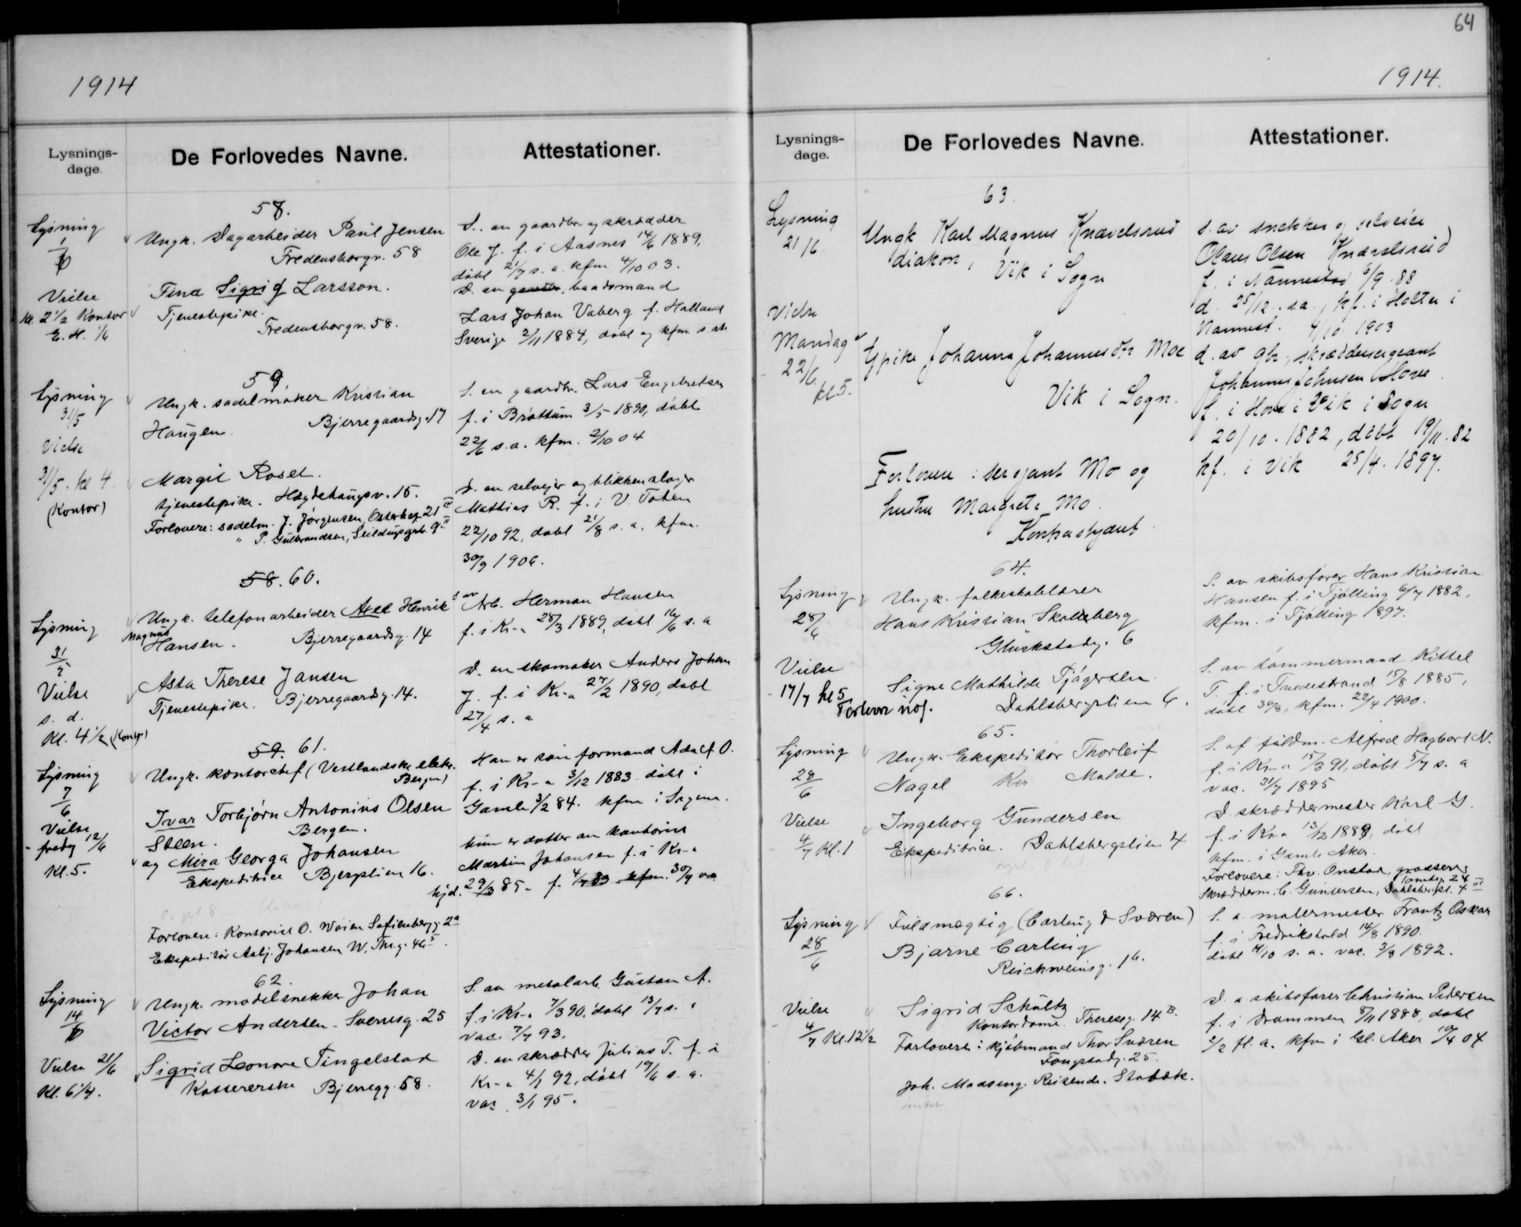 64
1914
1914.
Lysnings-
dage.
De Forlovedes Navne.
Attestationer.
58.
Lysning
1/6
Ungk. Dagarbeider Paul Jensen
Fredensborgv. 58
S. av gaardbr. og skrædder
Ole J. f. i Aasnes 14/6 1889,
døbt 21/7 s. a. kfm 4/10 03.
Vielse
kl. 2 1/2 Kontor
E. H. 1/6
Tina Sigrid Larsson.
Tjenestepike.
Fredensborgv. 58.
D. av baadsmand
Lars Johan Vaberg f. Halland
Sverige 2/11 1884, døbt og kfm s. st.
59.
Lysning
31/5
Vielse
31/5. kl 4
(Kontor)
Ungk. sadelmaker Kristian
Haugen. Bjerregaardsg. 17
S. av gaardbr. Lars Engebretsen
f. i Brøttum 3/5 1890, døbt
22/6 s. a. kfm. 2/10 04
Margit Roset.
tjenestepike. Hægdehaugsv. 15.
Forlovere: sadelm. J. Jørgensen, Osterhag 21 IV
" P. Gulbrandsen, Seilduksgt. 9 II
D. av selvejer og blikkenslager
Mathias R. f. i V. Toten
22/10 92, døbt 21/8 s. a. kfm.
30/9 1906.
58. 60.
Lysning
31/5
Vielse
s. d.
Kl. 4 1/2 (Kontor)
Ungk. telefonarbeider Axel Henrik
Magnus
Hansen. Bjerregaardsg. 14
S av
Arb. Herman Hansen
f. i Kr-a 28/3 1889, døbt 16/6 s. a
Asta Therese Jansen
Tjenestepike. Bjerregaardsg. 14.
D. av skomaker Anders Johan
J. f. i Kr-a 27/2 1890, døbt
27/4 s. a
59. 61.
Lysning
7/6
Vielse
fredag 12/6
Kl. 5.
Ungk. kontorchef (Vestlandske elektr.
Bergen)
Ivar Torbjørn Antonius Olsen
Steen. Bergen.
og Mira Georga Johansen
Ekspeditrice Bjerglien 16.
Han er søn formand Adolf O.
f. i Kr-a 3/12 1883 døbt i
Gamle 3/2 84. kfm i Sagene.
hun er datter av kantonist
Martin Johansen f. i Kr-a
29/3 85 -
Forlovere: Kontorist O. Weien Sofienbergg 2a
Ekspeditør Asbj. Johansen W. Thr.g. 46 I
62.
Lysning
14/6
Vielse 21/6
Kl. 6 1/4.
Ungk. modelsnekker Johan
Victor Andersen - Sverresg. 25
S. av metalarb. Gustav A.
f. i Kr-a 7/3 90, døbt 13/7 s. a
vac. 7/7 93.
Sigrid Leonore Tingelstad
Kassererske Bjerregg. 58.
D. av skrædder Julius T. f. i
Kr-a 4/1 92, døbt 19/6 s. a.
vac 3/1 95.
Lysnings-
dage.
De Forlovedes Navne.
Attestationer.
63.
Lysning
21/6
Ungk Karl Magnus Knævelsrud
diakon, Vik i Sogn
s. av snekker og selveier
Olaus Olsen Knævelsrud
f. i Nannestad 6/9 . 88
d. 25/12. s a., kf. i Holter i
Nannest. 4/10 1903
Vielse
Mandag
22/6
kl 5.
Ypike Johanna Johannesdtr Moe
Vik i Sogn.
d. av gbr., skrædder sergeant
Johannes Johnsen Hove
f. i Hove i Vik i Sogn
20/10. 1882, døbt 19/11. 82
kf. i Vik 25/4. 1897.
Forlovere: sergeant Mo og
hustru Margrete Mo.
Kontrasignt
64.
Lysning
28/6
Vielse
17/7 kl 5
Ungk. folkeskolelærer
Hans Kristian Skalleberg
Glückstadg. 6
S. av skibsfører Hans Kristian
Hansen f. i Tjølling 6/7 1882,
kfm. i Tjølling 1897.
Signe Mathilde Tjøgersen.
Dahlsbergstien 4.
Forlover nog.
S. av tømmermand Kittel
T. f. i Tvedestrand 15/8 1885,
døbt 30/8, kfm. 22/4 1900.
65.
Lysning
28/6
Vielse
4/7 Kl. 1
Ungk. Ekspeditør Thorleif
Nagel Molde.
S. af fuldm. Alfred Hagbart N.
f. i Kr-a 15/3 91, døbt 5/7 s. a
vac. 31/7 1895
Ingeborg Gundersen
Ekspeditrice. Dahlsbergstien 4
D. skræddermester Karl G.
f. i Kr-a 13/12 1888, døbt
kfm. i Gamle Aker.
Forlovere: Thv. Onstad, grosserer,
Skrædderm. C. Gundersen, Dahlsbergst. 4 III
66.
Lysning
28/6
Vielse
4/7 Kl. 12 1/2
Fuldmægtig (Carling & Sværen)
Bjarne Carling
Reichweinsg. 16.
S. a. malermester Frantz Oskar
f. i Fredrikshald 14/8 1890.
døbt 11/10 s. a. vac. 3/8 1892.
Sigrid Schultz
Kontordame. Theresesg. 14 B.
D. a skibsfører Christian Pedersen
f. i Drammen 8/11 1888, døbt
2/2 fl. a. kfm i Gl. Aker 10/4 04
Forlovere: Kjøbmand Thor Sværen
Fougstadg. 25.
Joh. Madseng. Reisende. Stabæk.